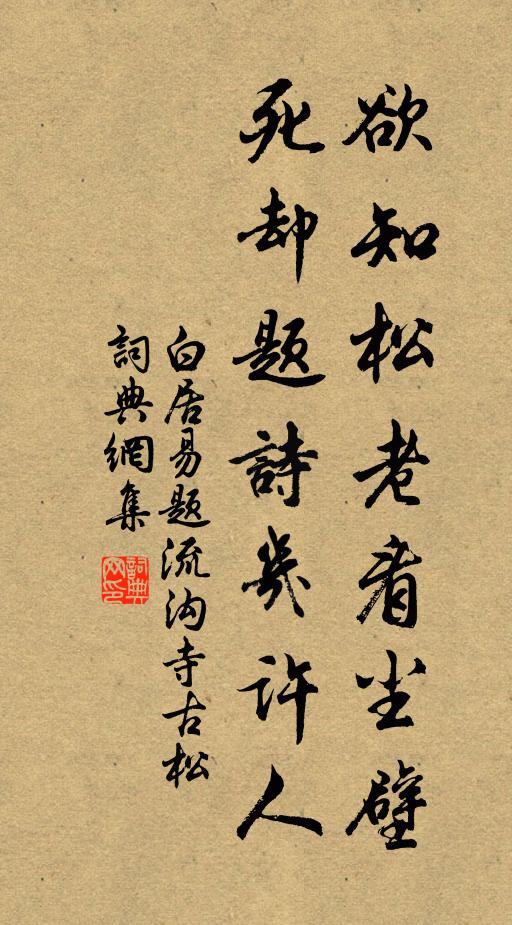 欲知松老看尘壁
死却题詩幾许人
白居易题流沟寺古松
詞典網集
詞典网印